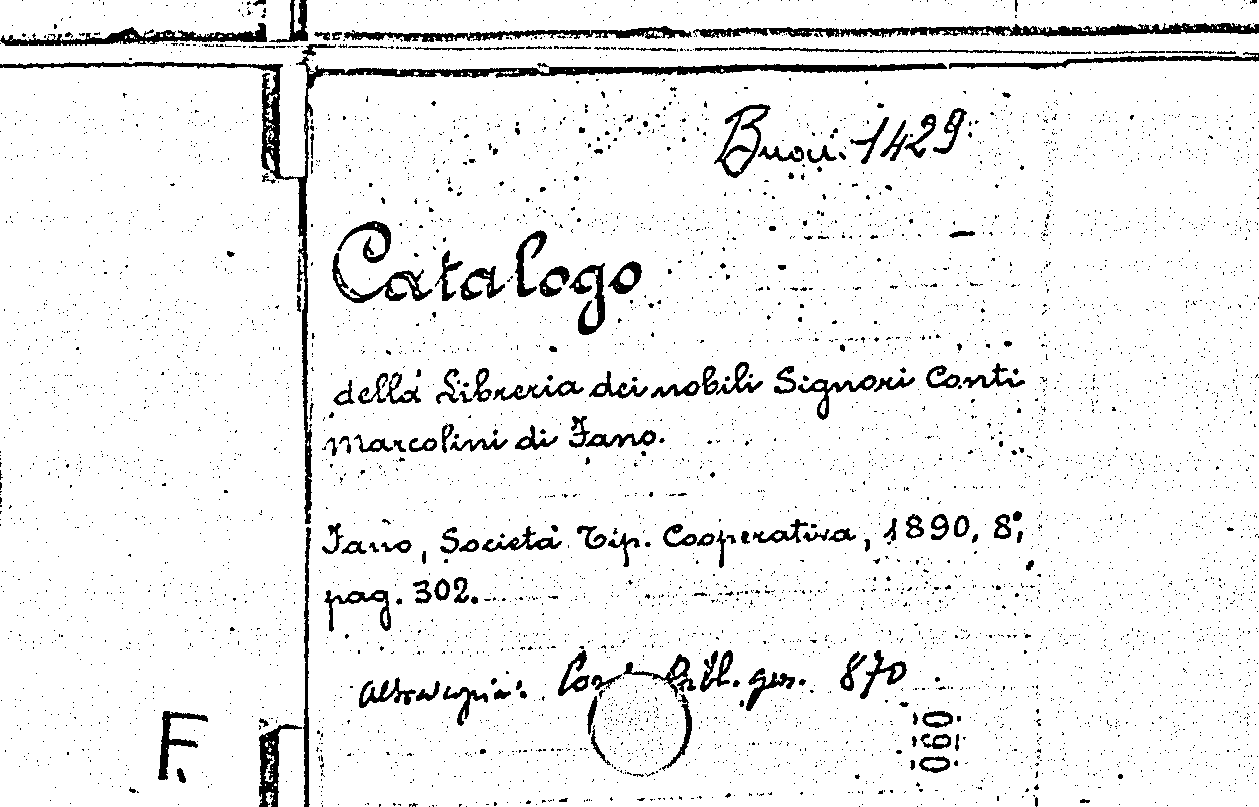 Buon. 1429.
Catalogo
della Libreria dei nobili Signori Conti
Marcolini di Fano.
Fano, Società Tip. Cooperativa, 1890, 8°,
pag. 302.
Altra copia: Bibl. gen. 870
F.
090